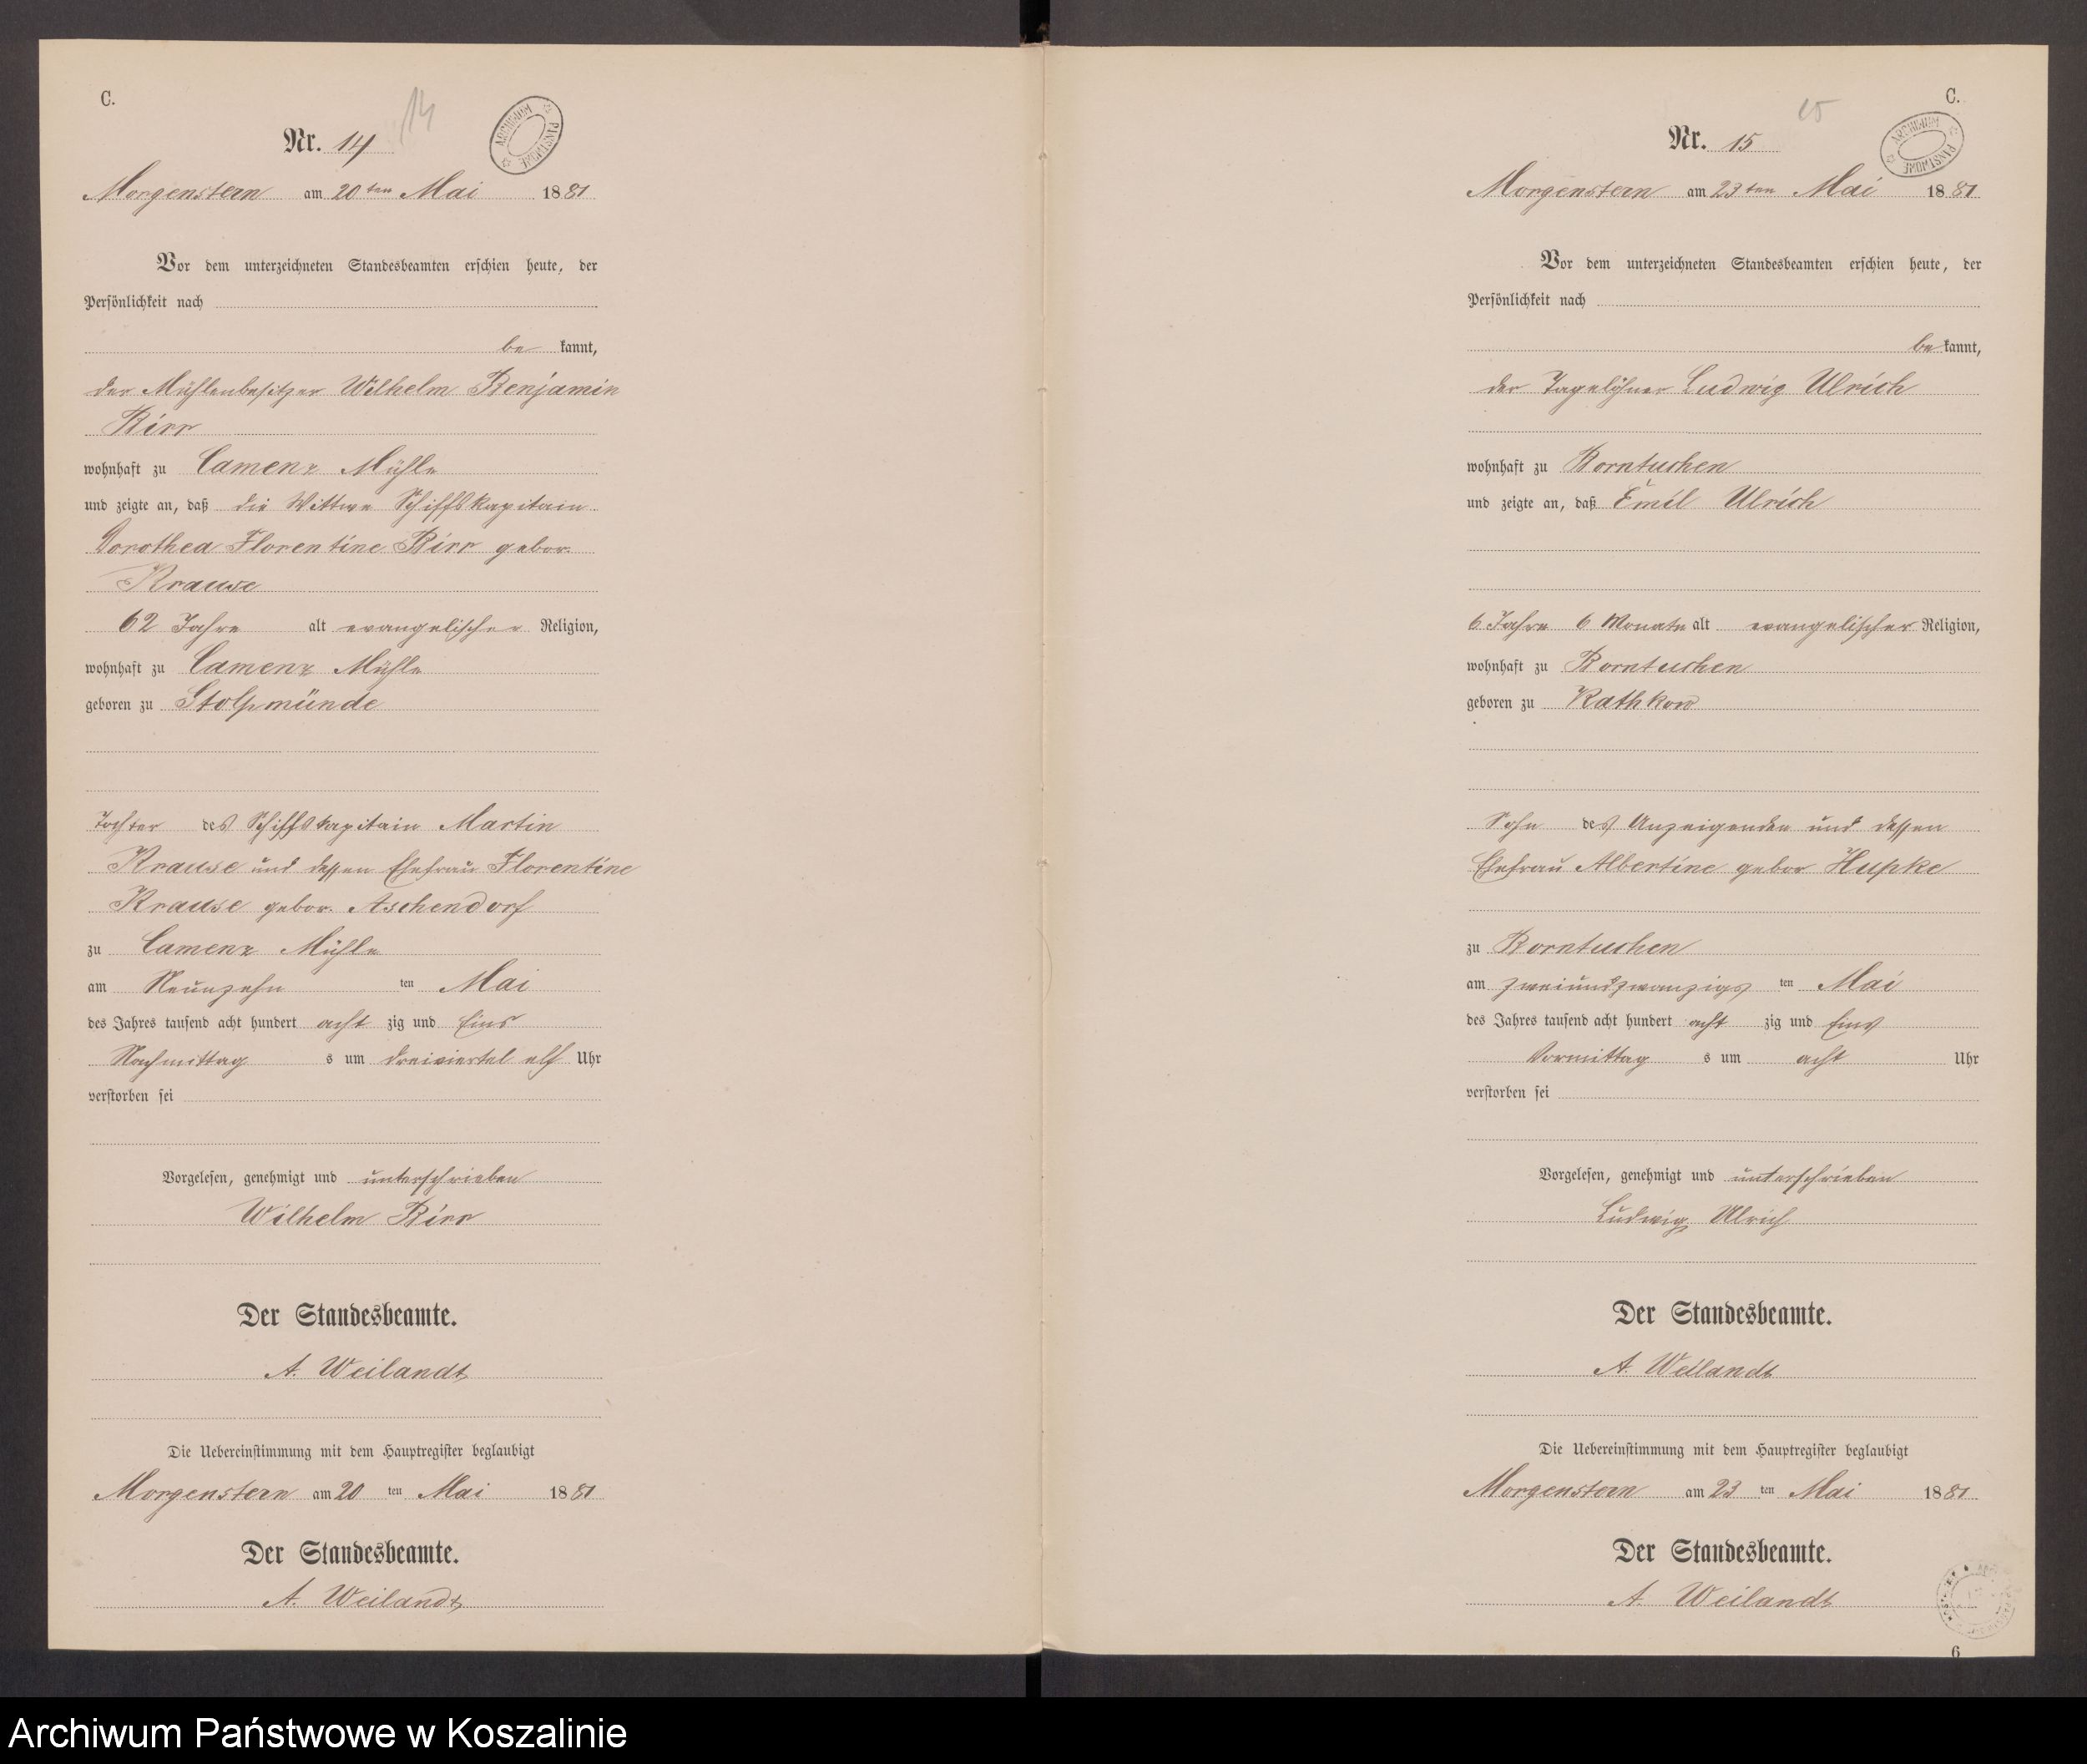 C.
14
Nr. 14
ARCHIWUM PAŃSTWOWE
Morgenstern am 20ten Mai 1881
Vor dem unterzeichneten Standesbeamten erschien heute, der
Persönlichkeit nach
be kannt,
der Mühlenbesitzer Wilhelm Benjamin
Birr
wohnhaft zu Camenz Mühle
und zeigte an, daß die Wittwe Schiffskapitain
Dorothea Florentine Birr gebor.
Krause
62 Jahre alt evangelischer Religion,
wohnhaft zu Camenz Mühle
geboren zu Stolpmünde
Tochter des Schiffskapitain Martin
Krause und dessen Ehefrau Florentine
Krause gebor. Aschendorf
zu Camenz Mühle
am Neunzehn ten Mai
des Jahres tausend acht hundert acht zig und Eins
Nachmittag s um dreiviertel elf Uhr
verstorben sei
Vorgelesen, genehmigt und unterschrieben
Wilhelm Birr
Der Standesbeamte.
A. Weilandt
Die Uebereinstimmung mit dem Hauptregister beglaubigt
Morgenstern am 20 ten Mai 1881
Der Standesbeamte.
A. Weilandt
C.
15
Nr. 15
ARCHIWUM PAŃSTWOWE
Morgenstern am 23ten Mai 1881
Vor dem unterzeichneten Standesbeamten erschien heute, der
Persönlichkeit nach
be kannt,
der Tagelöhner Ludwig Ulrich
wohnhaft zu Borntuchen
und zeigte an, daß Emil Ulrich
6 Jahre 6 Monate alt evangelischer Religion,
wohnhaft zu Borntuchen
geboren zu Rathkow
Sohn des Anzeigenden und dessen
Ehefrau Albertine gebor Hupke
zu Borntuchen
am zweiundzwanzigs ten Mai
des Jahres tausend acht hundert acht zig und Eins
Vormittag s um acht Uhr
verstorben sei
Vorgelesen, genehmigt und unterschrieben
Ludwig Ulrich
Der Standesbeamte.
A. Weilandt
Die Uebereinstimmung mit dem Hauptregister beglaubigt
Morgenstern am 23 ten Mai 1881
Der Standesbeamte.
A. Weilandt
6
Archiwum Państwowe w Koszalinie